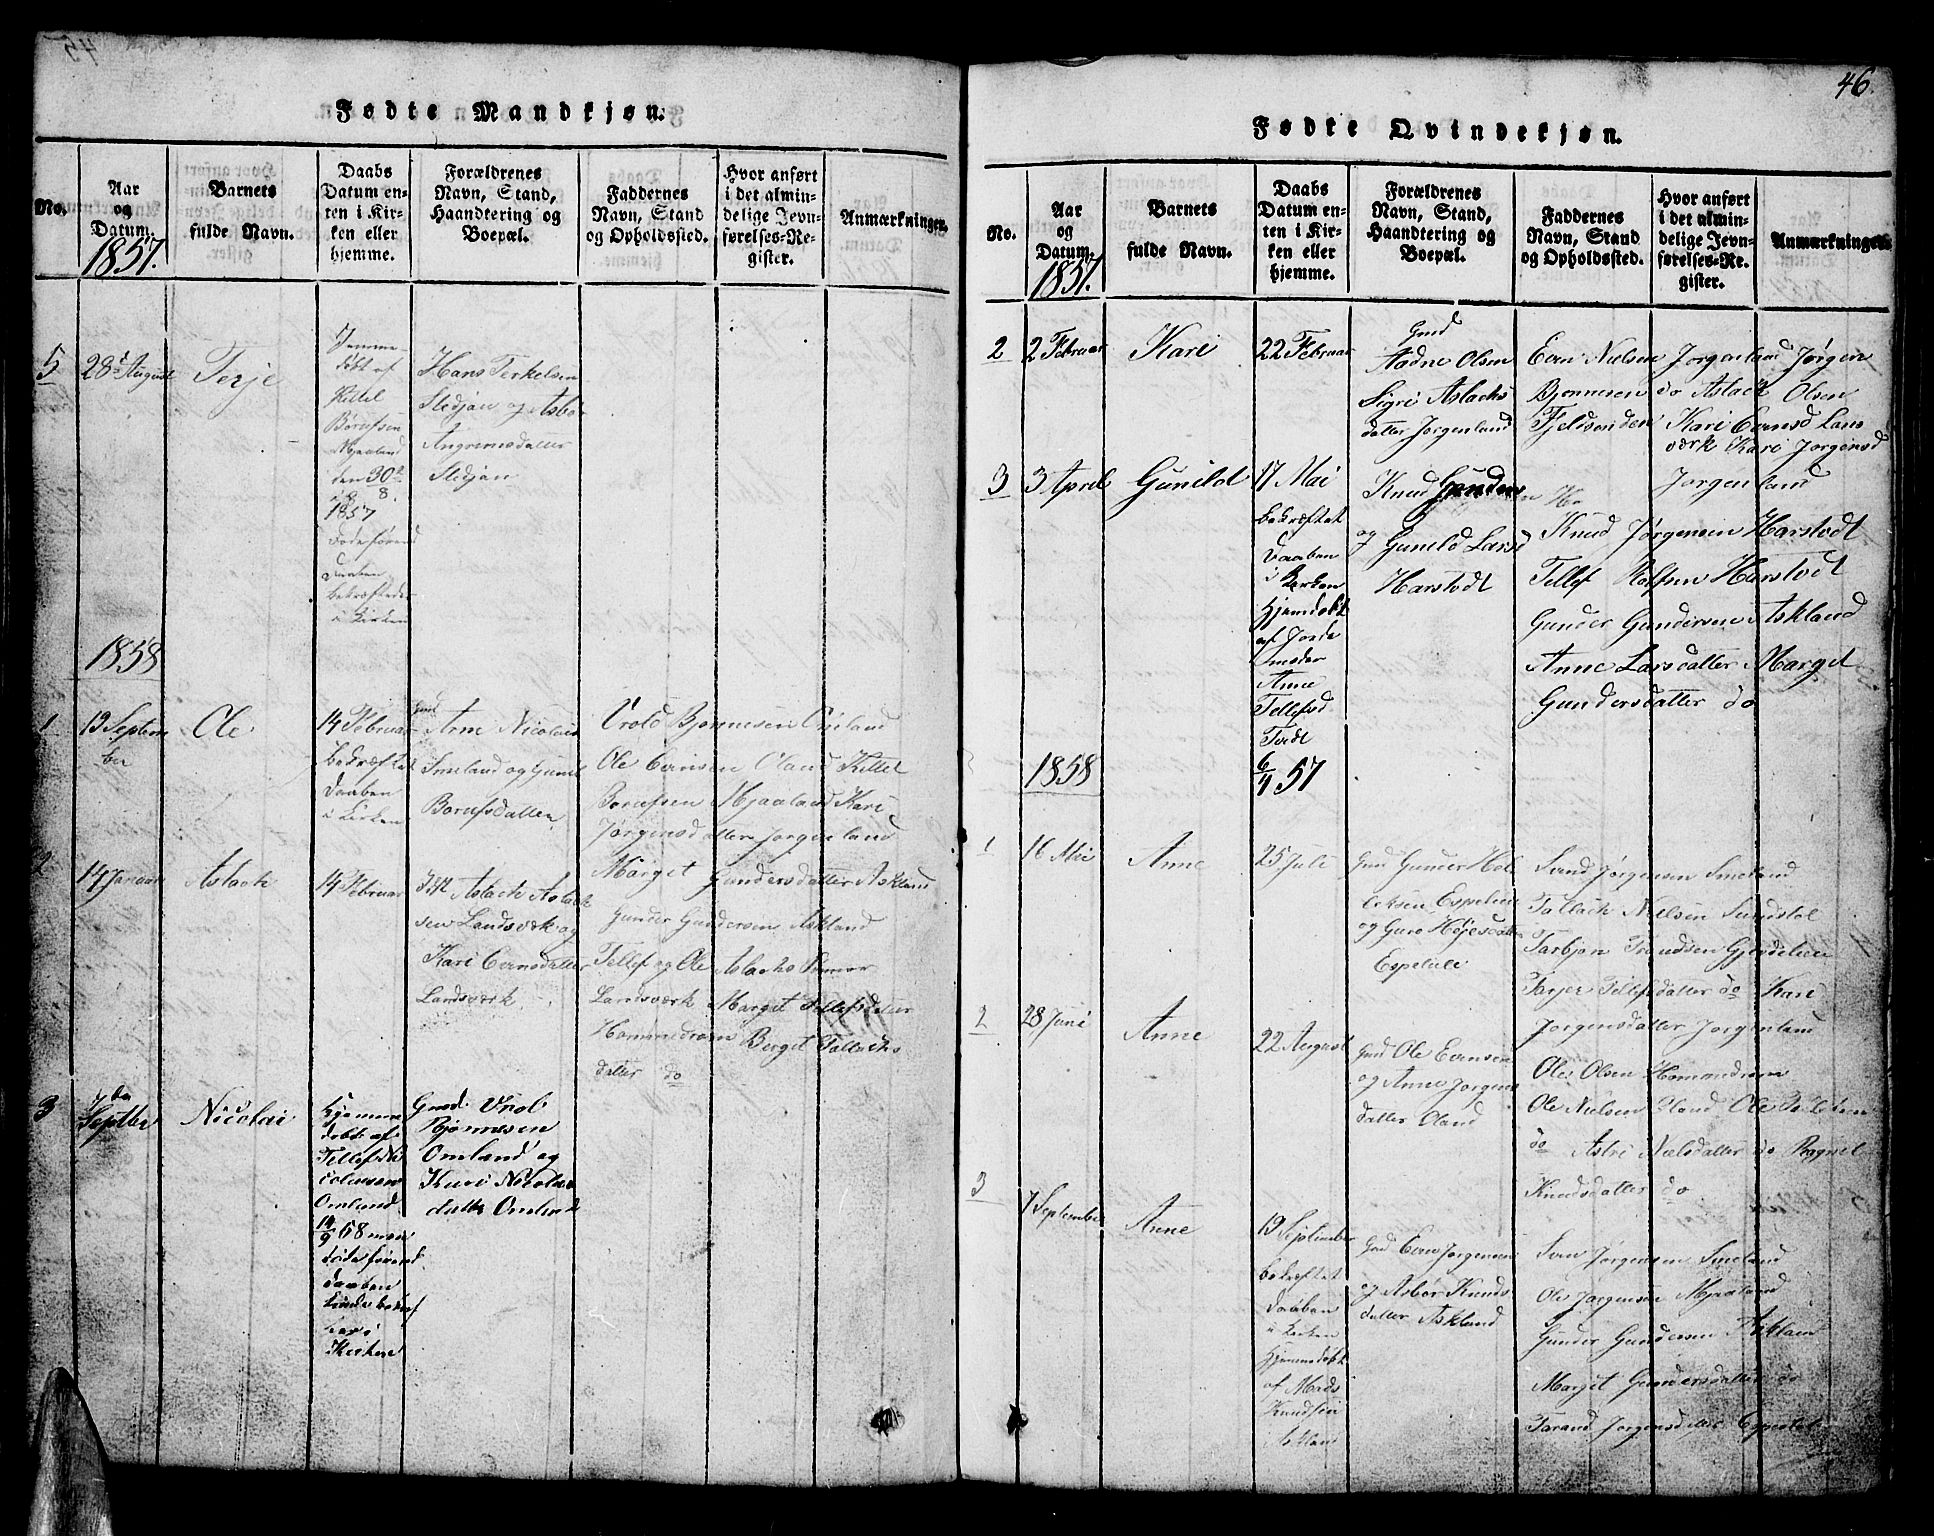 46.
Fødte Mandkjøn.
No.
Aar
og
Datum.
1857.
Barnets
fulde Navn.
Daabs
Datum en-
ten i Kir-
ken eller
hjemme.
Forældrenes
Navn, Stand,
Haandtering og
Boepæl.
Faddernes
Navn, Stand
og Opholdssted.
Hvor anført
i det almin-
delige Jevn-
førelses-Re-
gister.
Anmærkninger.
5
28 August
Terje
Hjemme
døbt af
Kittel
Børufsen
Mjaaland
den 30
8.
1857
Daaben
bekræftedes
i Kirken
Hans Terkelsen
Sledjån og Asbo
Angrimsdatter
Sledjån
1858
1
13 Septem
ber
Ole
14 Februar
Bekræftet
Daaben
i Kirken
Gmd
Arne Nicolais
Smeland og Gune
Borufsdatter
Vrold Bjønnesen Omland
Ole Evensen Oland Kittel
Borufsen Mjaaland Kari
Jørgensdatter Jorgenland
2
14 Januar
Aslach
14 Februar
Aslach Aslach
sen Landsværk og
Kari Evensdatter
Landsværk
Marget Gundersdatter Askland
Gunder Gundersen Askland
Tellef og Ole Aslachs
Landsværk Marget Tellefsdatter
Hommedrom Berget Tallachs
datter do
3
7
Septbr
Nicolai
Hjemme
døbt af
Tellef Ni
colaisen
Omland
14/9 58
Daaben
i
Kirken
Gmd. Vrol
Bjønnesen
Omland og
Kari Nicolai
datter Omland
Fødte Qvindekjøn.
No.
Aar
og
Datum.
1857.
Barnets
fulde Navn.
Daabs
Datum en-
ten i Kir-
ken eller
hjemme.
Forældrenes
Navn, Stand,
Haandtering og
Boepæl.
Faddernes
Navn, Stand
og Opholdssted.
Hvor anført
i det almin-
delige Jevn-
førelses-Re-
gister.
Anmærkninger.
2
2 Februar
Kari
22 Februar
Gmd
Aadne Olsen
Sigri Aslachs
datter Jorgenland
Even Nielsen Jorgenland Jørgen
Bjønnesen do Aslach Olsen
Kari Evensd Lans
værk Kari Jorgensd
Jorgenland
3
3 April
Gunild
17 Mai
bekræftet
Daaben
i Kirken
Hjemdøbt
af Jorde
moder
Anne
Tellefsd
Tvedt
6/4 57
Knud Gunders
og Gunild Larsd
Harstvedt
Knud Jørgensen Harstvedt
Tellef Rolfsen Harstvedt
Gunder Gundersen Askland
Anne Larsdatter Marget
Gundersdatter do
1858
1
16 Mai
Anne
25 Juli
Gmd Gunder Hol
Espelien
og Guro Højesdatter
Espelile
Svend Jørgensen Smeland
Tallach Nielsen Sundstøl
Tarbjøn Trondsen
Tarjer Tellefsdatter do Kari
Jorgensdatter Jorgenland
2
28 Juni
Anne
22 August
Gmd Ole Evensen
og Anne Jorgens
datter Oland
Ole Olsen Homandrom
Ole Nielsen Oland Ole
do Astri Nielsdatter do Ragnil
Knudsdatter do
3
7 September
Anne
19 September
bekræftet
Daaben
i Kirken
Hjemmedøbt
af Mads
Knudsen
Gmd Even Jorgensen
og Asbør Knuds
datter Askland
Sven Jørgensen Smeland
Ole Jorgensen Mjaaland
Gunder Gundersen Asklan
Marget Gundersdatter do
Tarand Jorgensdatter